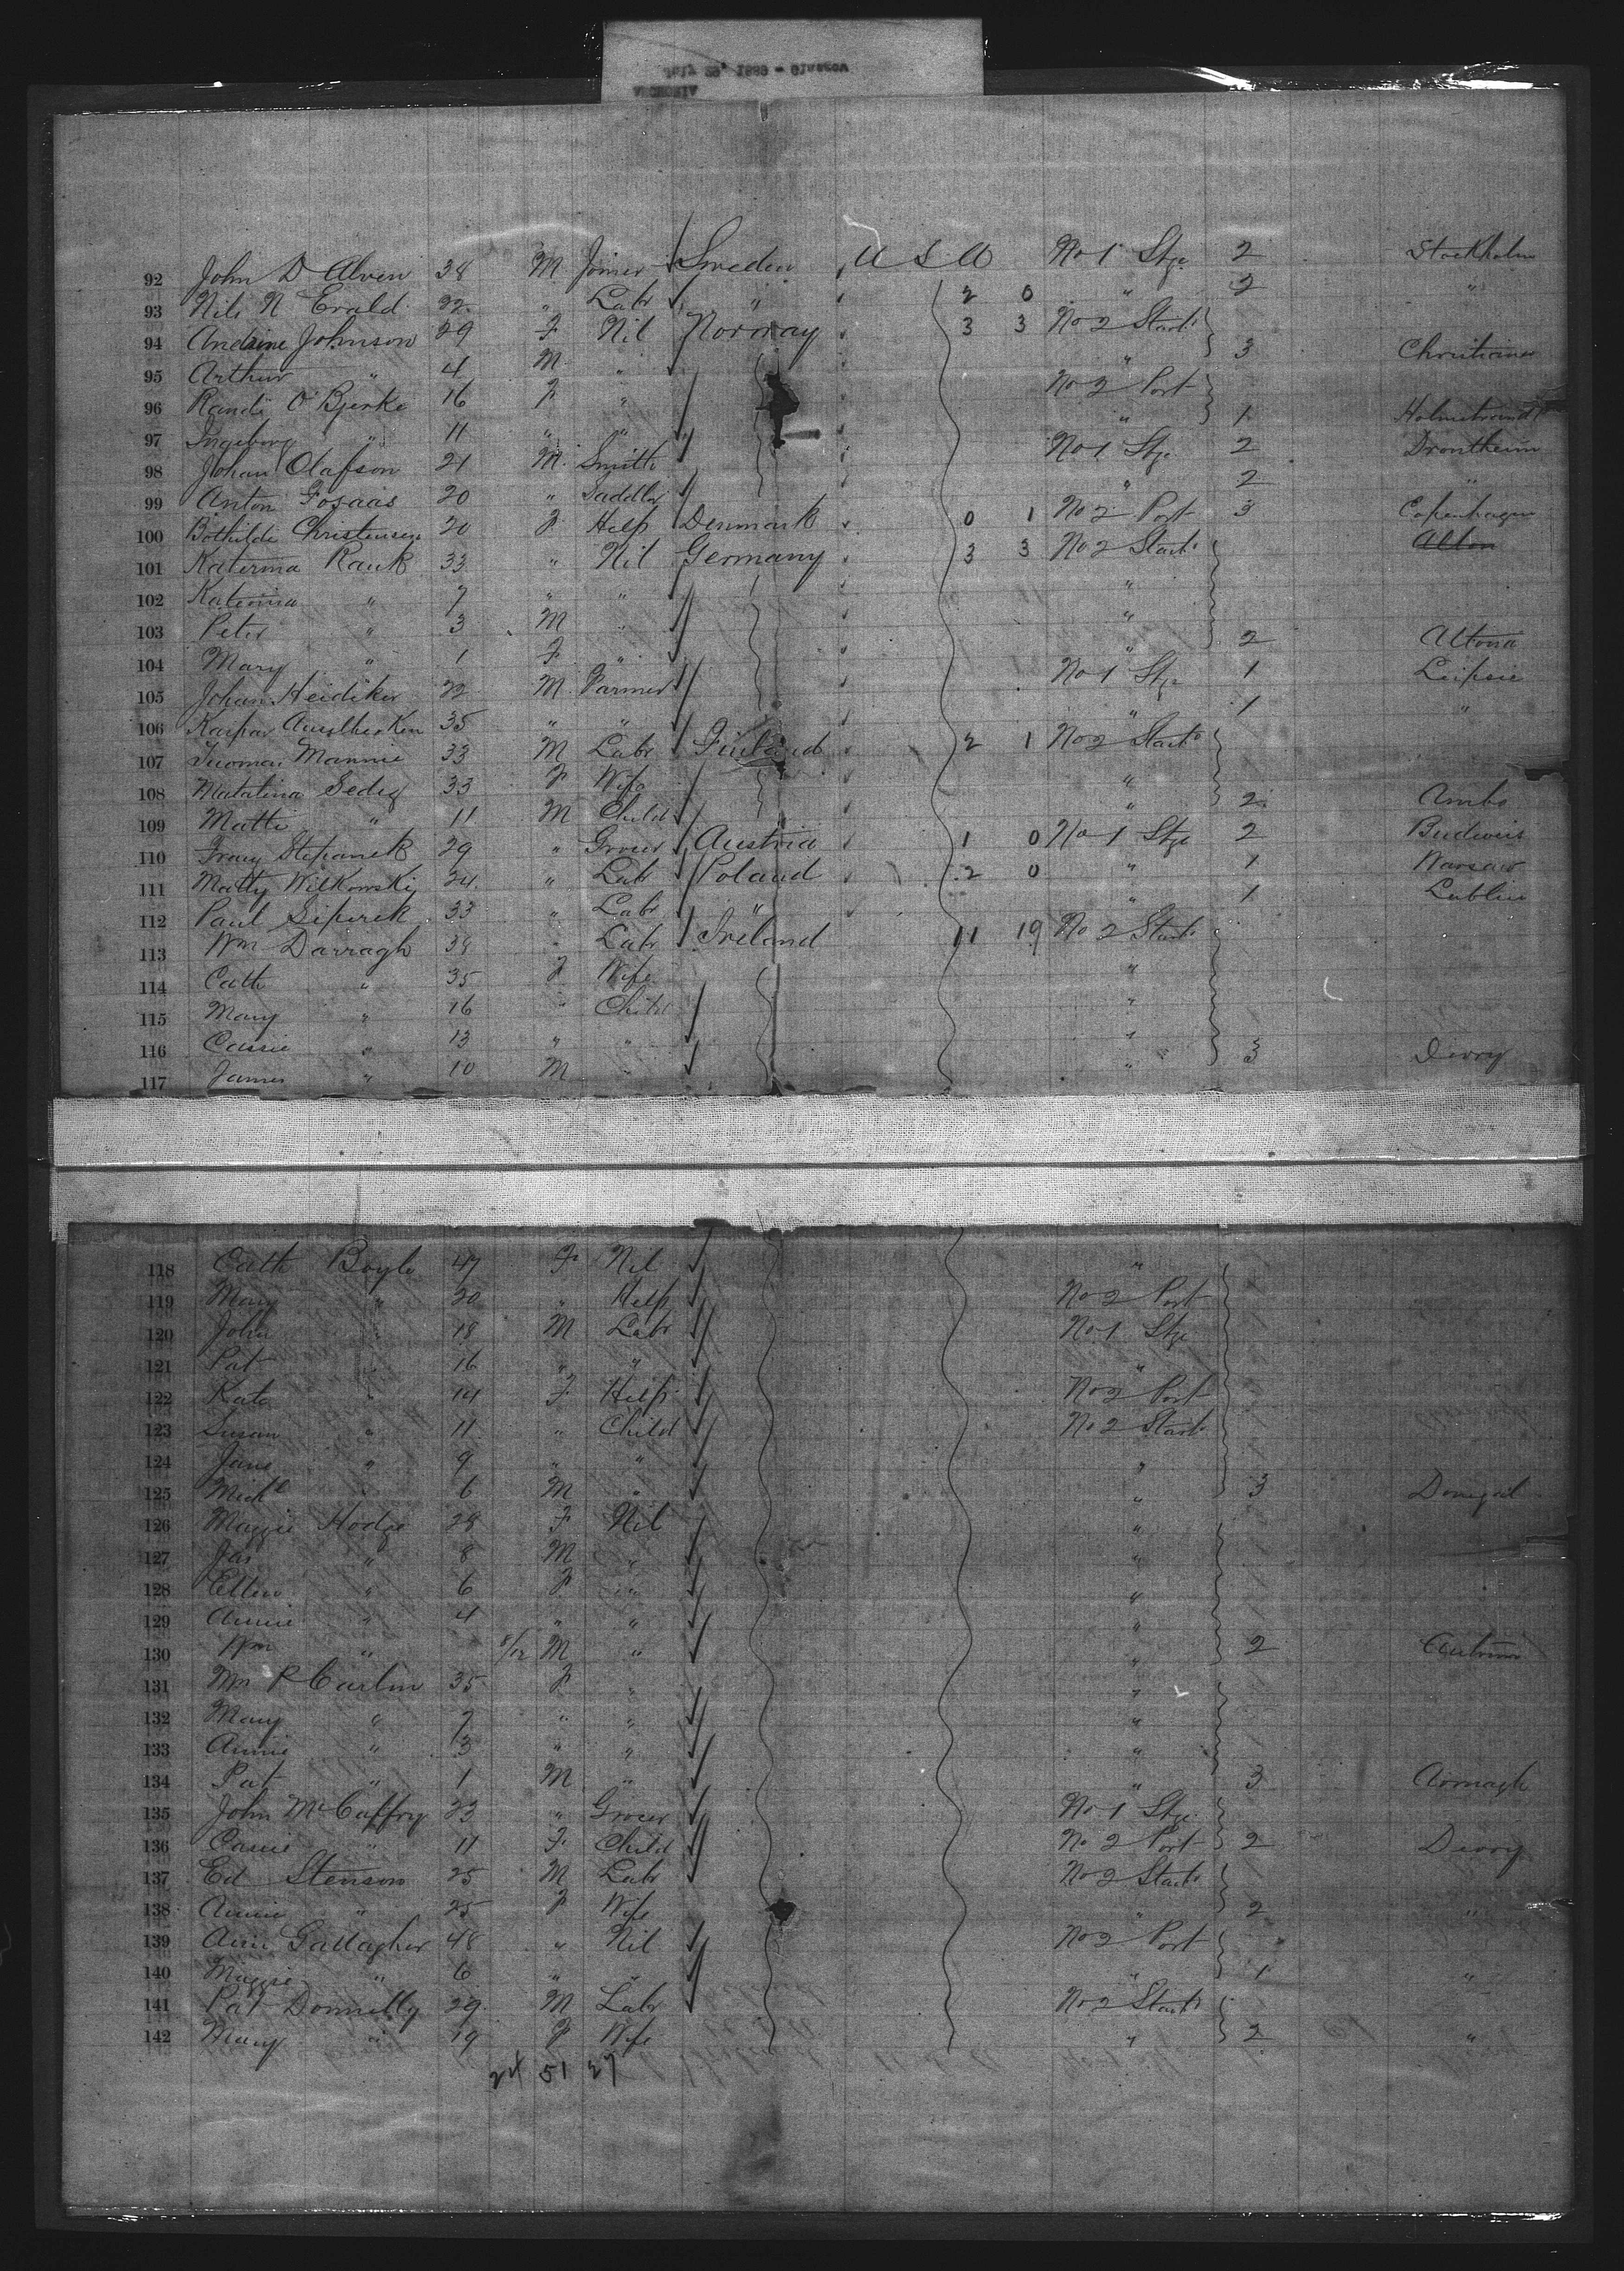 July 29, 1889 - Glasgow
92 John D Alven 38 M Joiner Sweden U S A No 1 Stge 2 Stockholm
93 Nils N Evald 22 " Labr " 2 0 " 2 "
94 Andrine Johnson 29 F Nil Norway 3 3 No 2 Starb
95 Arthur " 4 M " " 3 Christiania
96 Randi O Bjerke 16 F " No 2 Port
97 Ingeborg " 11 " " " 1
98 Johan Olafson 21 M Smith No 1 Stge 2 Drontheim
99 Anton Fosaas 20 " Saddler " 2 "
100 Bothilde Christensen 20 F Help Denmark 0 1 No 2 Port 3 Copenhagen
101 Katerina Rauk 33 " Nil Germany 3 3 No 2 Starb
102 Katerina " 7 " " "
103 Peter " 3 M " "
104 Mary " 1 F " " 2 Altona
105 Johan Heidiker 22 M Farmer No 1 Stge 1 Leipsic
106 Kaspar 35 " " " 1 "
107 Tuomas Mannie 33 M Labr Finland 2 1 No 2 Starb
108 Matalina Sedig 33 F Wife "
109 Matti " 11 M Child " 2
110 Stepanek 29 " Grocer Austria 1 0 No 1 Stge 2 Budweis
111 Matty Wilkowski 24 " Labr Poland 2 0 " 1 Warsaw
112 Paul 33 " Labr " " 1 Lublin
113 Wm Darragh 38 " Labr Ireland 11 19 No 2 Starb
114 Cath " 35 F Wife "
115 Mary " 16 " Child "
116 Cassie " 13 " " "
117 James " 10 M " " 3 Derry
118 Cath Boyle 47 F Nil "
119 Mary " 20 " Help No 2 Port
120 John " 18 M Labr No 1 Stge
121 Pat " 16 " " "
122 Kate " 14 F Help No 2 Port
123 Susan " 11 " Child No 2 Starb
124 Jane " 9 " " "
125 Michl " 6 M " " 3 Donegal
126 Maggie Hodge 28 F Nil "
127 Jas " 8 M " "
128 Ellen " 6 F " "
129 Annie " 4 " " "
130 Wm " 8/12 M " " 2 Antrim
131 P Carlin 35 F " "
132 Mary " 7 " " "
133 Annie " 3 " " "
134 Pat " 1 M " " 3 Armagh
135 John McCaffry 23 " Grocer No 1 Stge
136 Cassie " 11 F Child No 2 Port 2 Derry
137 Ed Stenson 25 M Labr No 2 Starb
138 Annie " 25 F Wife " 2 "
139 Ann Gallagher 48 " Nil No 2 Port
140 Maggie " 6 " " " 1 "
141 Pat Donnelly 29 M Labr No 2 Starb
142 Mary " 19 F Wife " 2 "
24 51 27